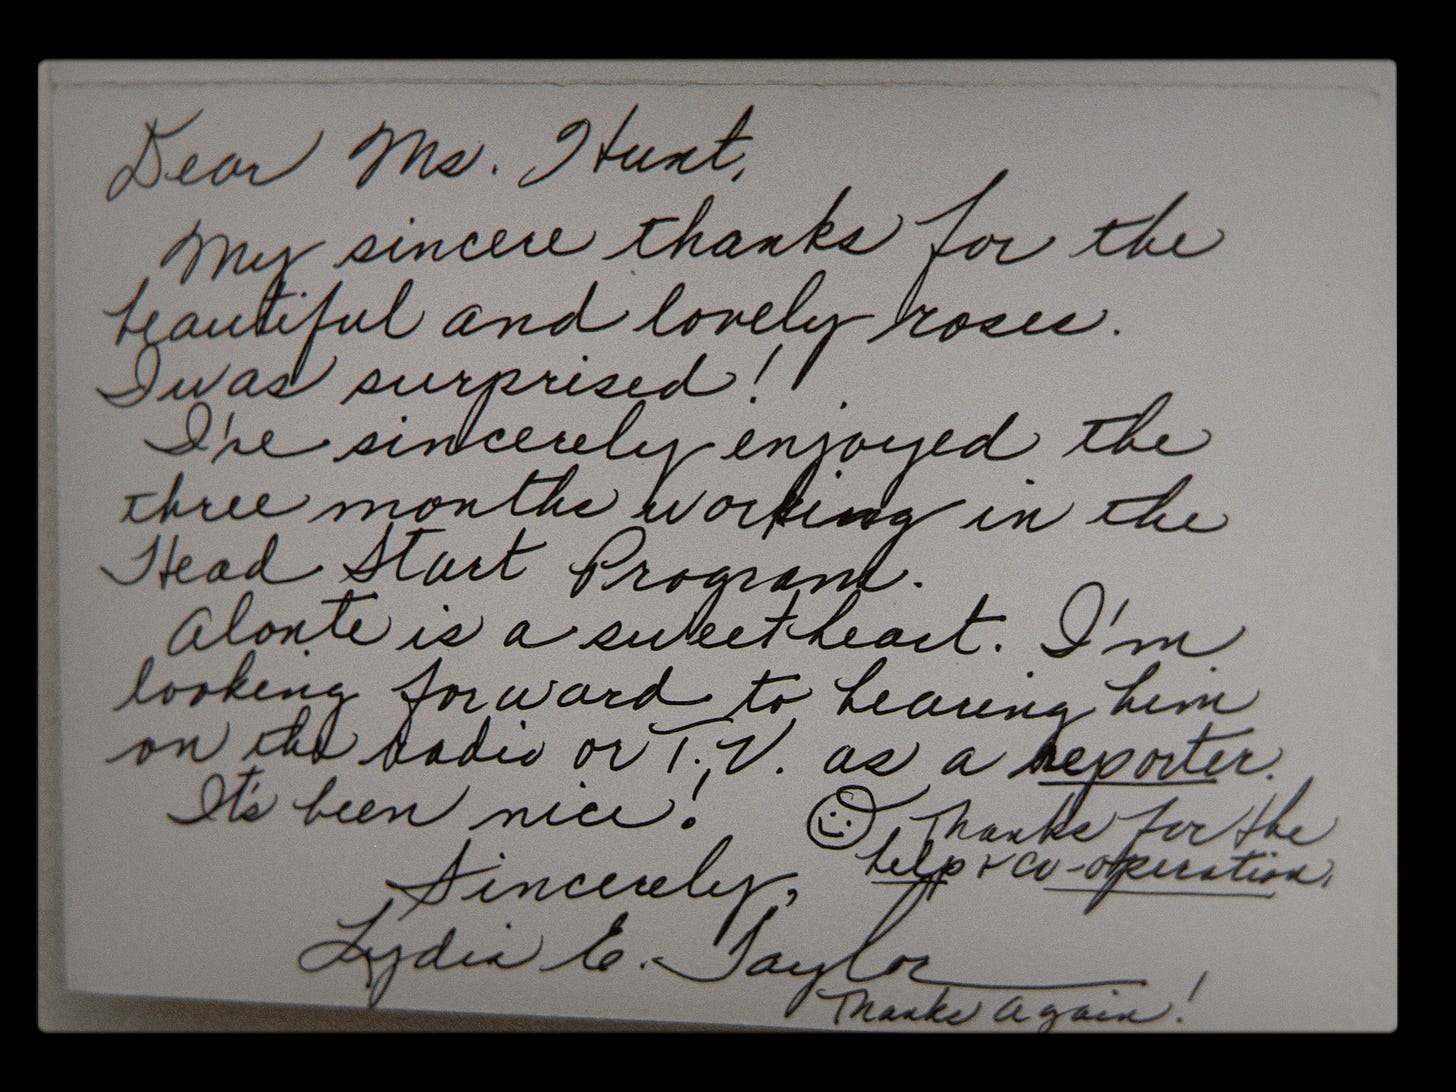 Dear Ms. Hunt,
My sincere thanks for the
beautiful and lovely roses.
I was surprised!
I've sincerely enjoyed the
three months working in the
Head Start Program.
Alonte is a sweetheart. I'm
looking forward to hearing him
on the radio or T.V. as a reporter.
It's been nice!
Thanks for the
help & co-operation.
Sincerely,
Lydia E. Taylor
Thanks Again!